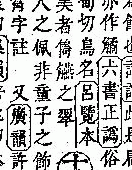 亦作觿六書正譌俗
旬切鳥名呂覽本
美者儁觿之翠
人之佩非童子之飾
角字註又廣韻許